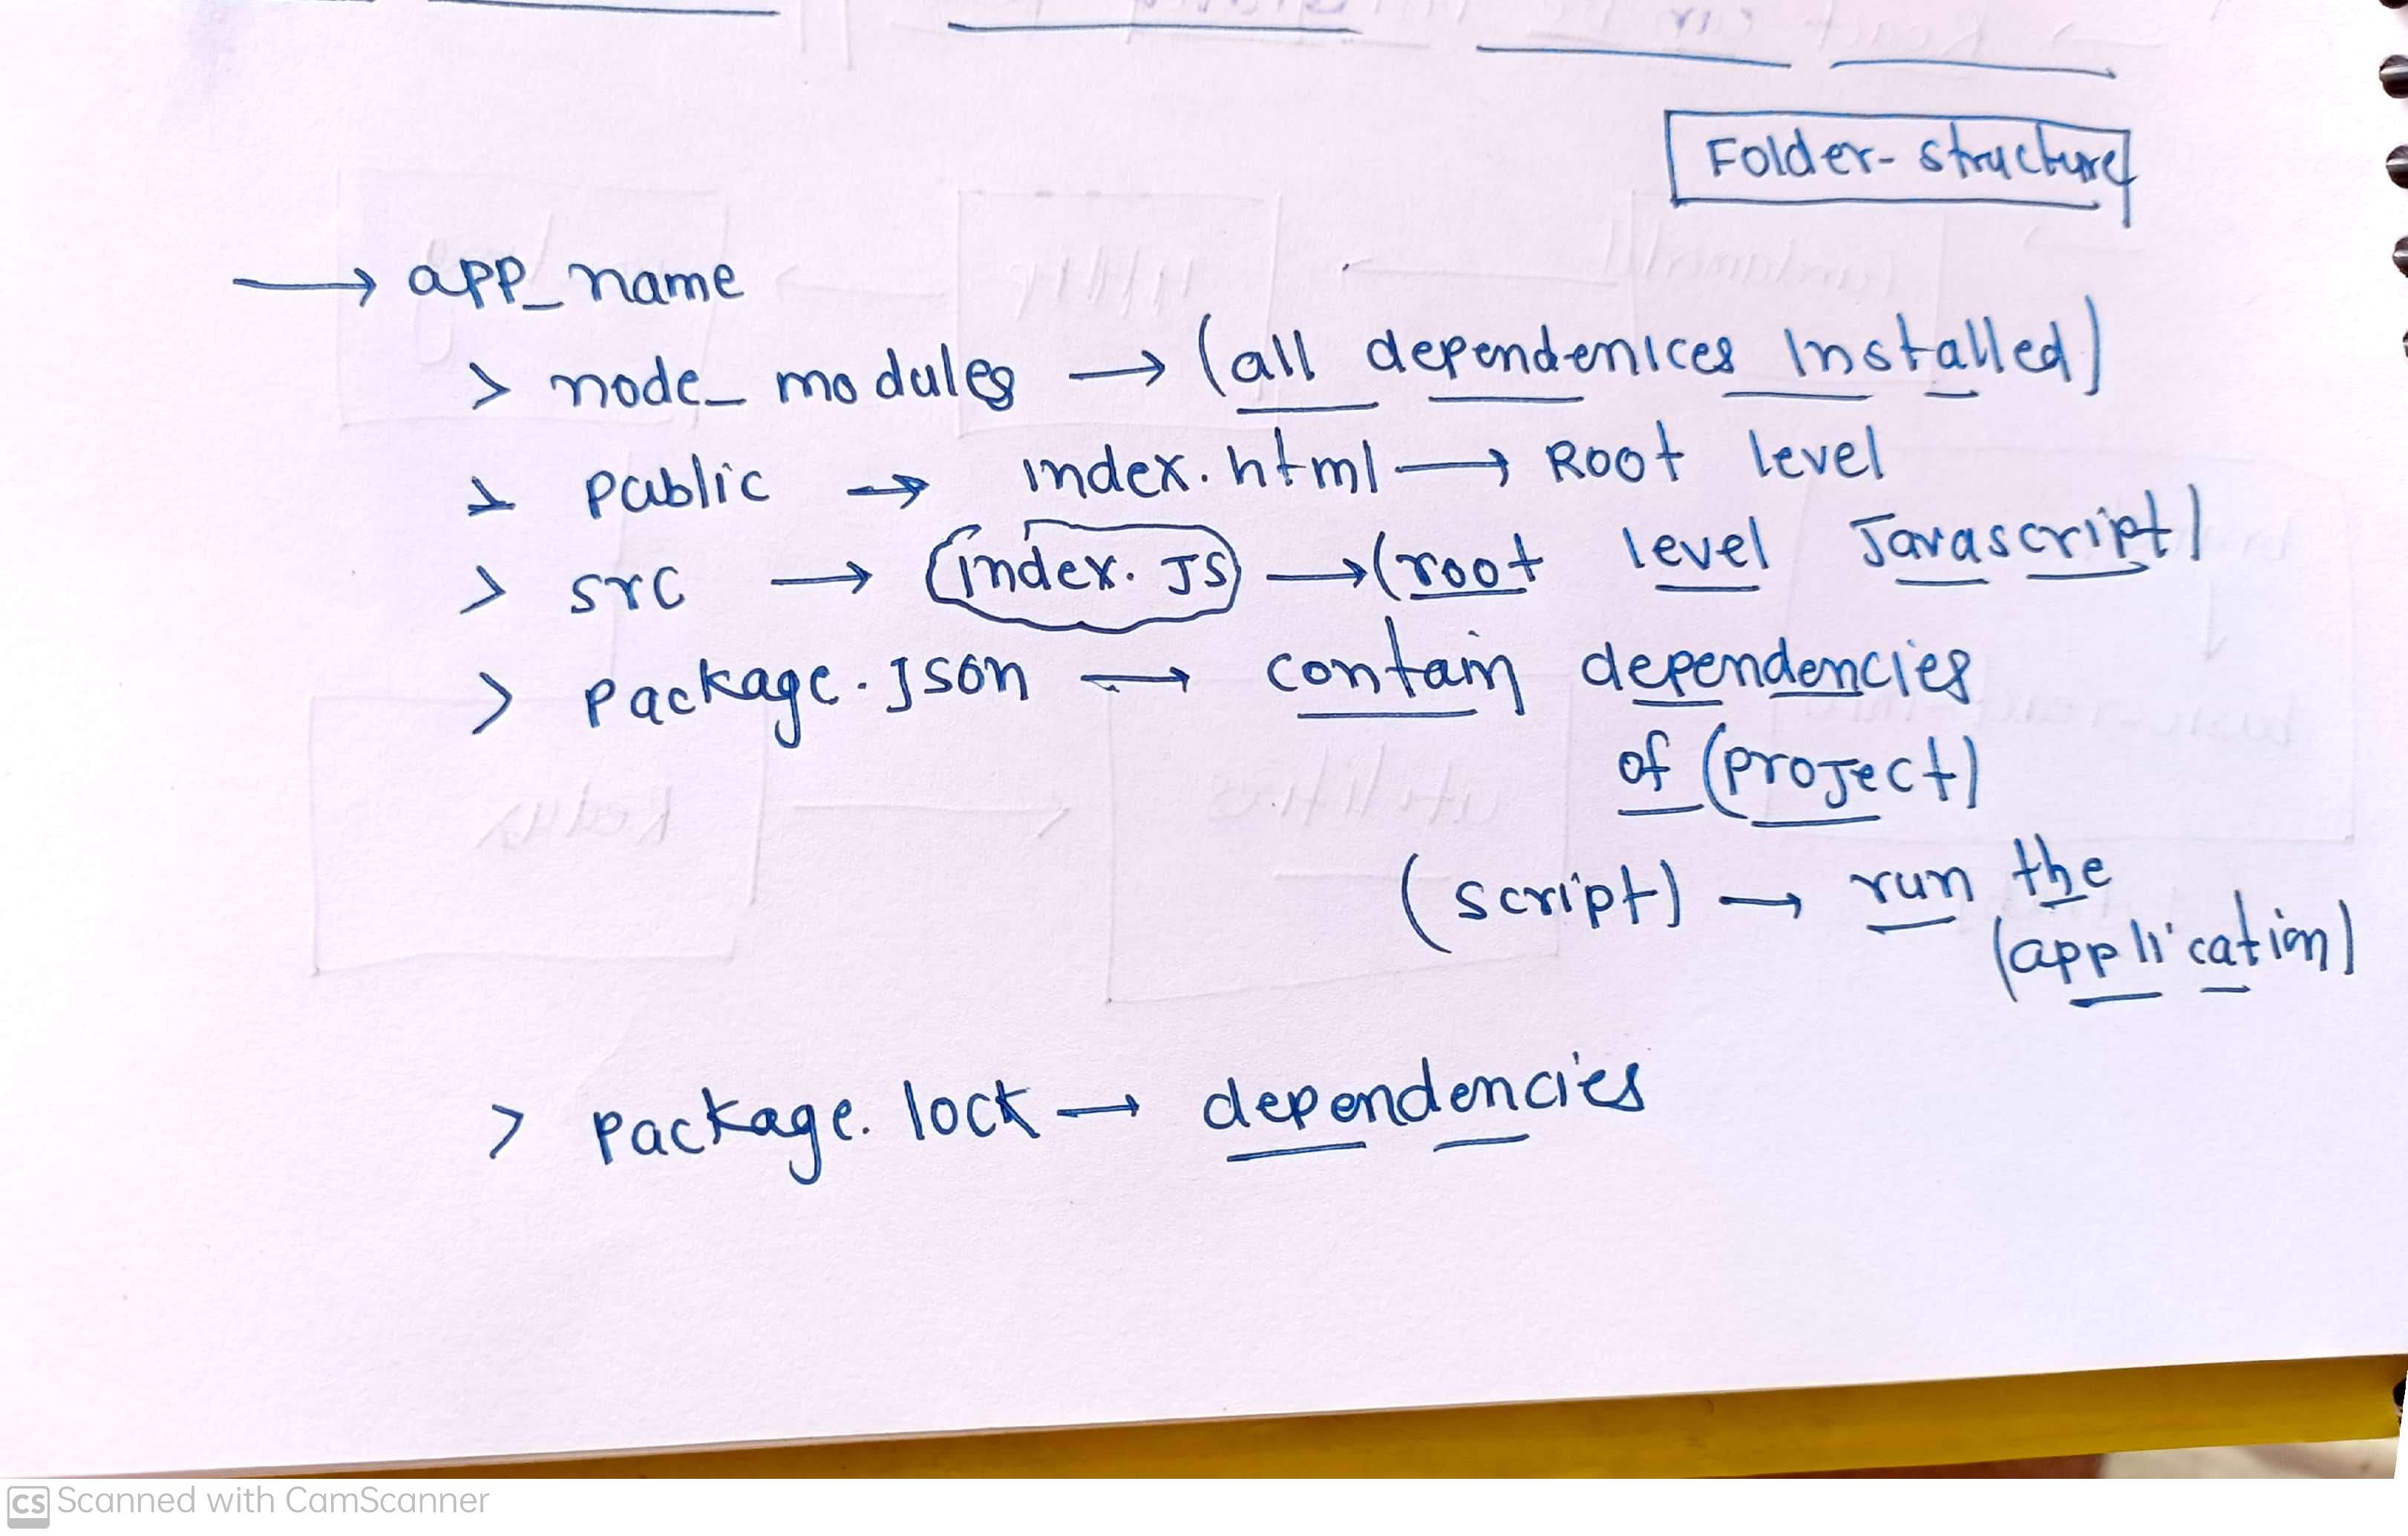 Folder-structure
→ app_name
> node_modules → (all dependenices Installed)
> public → index.html → Root level
> src → (index.JS) → (root level Javascript)
> package.json → contain dependencies
of (project)
(script) → run the
(application)
> package.lock → dependencies
CS Scanned with CamScanner